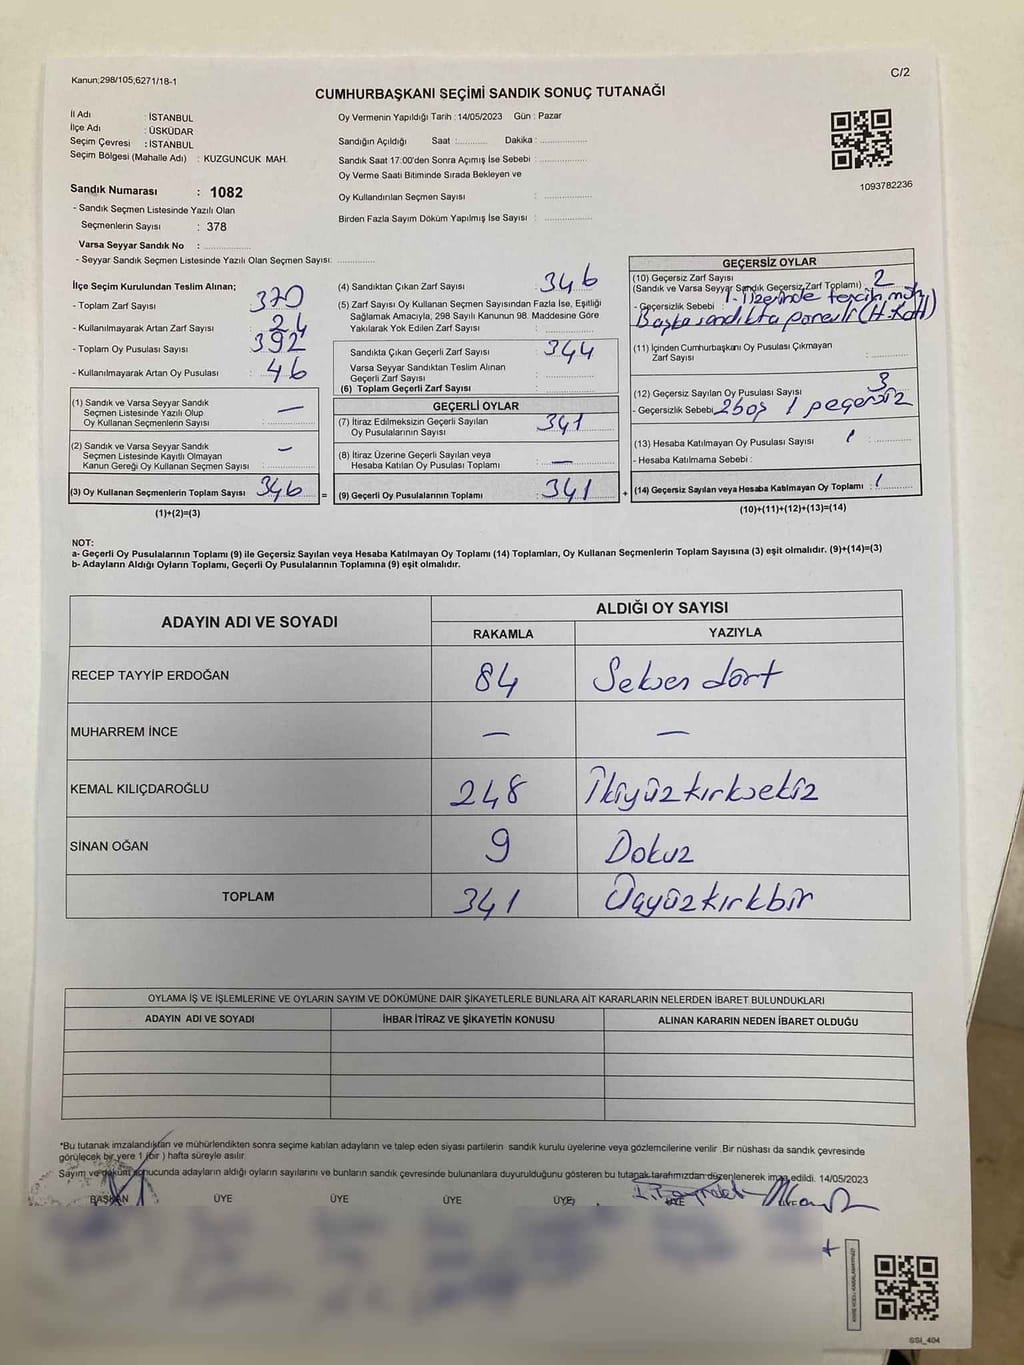 Kanun;298/105,6271/18-1
C/2
CUMHURBAŞKANI SEÇİMİ SANDIK SONUÇ TUTANAĞI
İl Adı : İSTANBUL
İlçe Adı : ÜSKÜDAR
Seçim Çevresi : İSTANBUL
Seçim Bölgesi (Mahalle Adı) : KUZGUNCUK MAH.
Sandık Numarası : 1082
- Sandık Seçmen Listesinde Yazılı Olan
Seçmenlerin Sayısı : 378
Varsa Seyyar Sandık No :
- Seyyar Sandık Seçmen Listesinde Yazılı Olan Seçmen Sayısı:
Oy Vermenin Yapıldığı Tarih :14/05/2023 Gün : Pazar
Sandığın Açıldığı Saat : Dakika :
Sandık Saat 17:00'den Sonra Açımış İse Sebebi :
Oy Verme Saati Bitiminde Sırada Bekleyen ve
Oy Kullandırılan Seçmen Sayısı :
Birden Fazla Sayım Döküm Yapılmış İse Sayısı :
1093782236
İlçe Seçim Kurulundan Teslim Alınan;
- Toplam Zarf Sayısı : 370
- Kullanılmayarak Artan Zarf Sayısı : 24
- Toplam Oy Pusulası Sayısı : 392
- Kullanılmayarak Artan Oy Pusulası : 46
(1) Sandık ve Varsa Seyyar Sandık
Seçmen Listesinde Yazılı Olup
Oy Kullanan Seçmenlerin Sayısı : —
(2) Sandık ve Varsa Seyyar Sandık
Seçmen Listesinde Kayıtlı Olmayan
Kanun Gereği Oy Kullanan Seçmen Sayısı : —
(3) Oy Kullanan Seçmenlerin Toplam Sayısı : 346 =
(1)+(2)=(3)
(4) Sandıktan Çıkan Zarf Sayısı : 346
(5) Zarf Sayısı Oy Kullanan Seçmen Sayısından Fazla İse, Eşitliği
Sağlamak Amacıyla, 298 Sayılı Kanunun 98. Maddesine Göre
Yakılarak Yok Edilen Zarf Sayısı :
Sandıkta Çıkan Geçerli Zarf Sayısı : 344
Varsa Seyyar Sandıktan Teslim Alınan
Geçerli Zarf Sayısı :
(6) Toplam Geçerli Zarf Sayısı :
GEÇERLİ OYLAR
(7) İtiraz Edilmeksizin Geçerli Sayılan
Oy Pusulalarının Sayısı : 341
(8) İtiraz Üzerine Geçerli Sayılan veya
Hesaba Katılan Oy Pusulası Toplamı : —
(9) Geçerli Oy Pusulalarının Toplamı : 341 +
GEÇERSİZ OYLAR
(10) Geçersiz Zarf Sayısı
(Sandık ve Varsa Seyyar Sandık Geçersiz Zarf Toplamı) : 2
- Geçersizlik Sebebi : 1. Üzerinde tercih
Başka sandıkta
(11) İçinden Cumhurbaşkanı Oy Pusulası Çıkmayan
Zarf Sayısı :
(12) Geçersiz Sayılan Oy Pusulası Sayısı : 3
- Geçersizlik Sebebi : 2 boş 1 geçersiz
(13) Hesaba Katılmayan Oy Pusulası Sayısı :
- Hesaba Katılmama Sebebi :
(14) Geçersiz Sayılan veya Hesaba Katılmayan Oy Toplamı : 1
(10)+(11)+(12)+(13)=(14)
NOT:
a- Geçerli Oy Pusulalarının Toplamı (9) ile Geçersiz Sayılan veya Hesaba Katılmayan Oy Toplamı (14) Toplamları, Oy Kullanan Seçmenlerin Toplam Sayısına (3) eşit olmalıdır. (9)+(14)=(3)
b- Adayların Aldığı Oyların Toplamı, Geçerli Oy Pusulalarının Toplamına (9) eşit olmalıdır.
ADAYIN ADI VE SOYADI ALDIĞI OY SAYISI
RAKAMLA YAZIYLA
RECEP TAYYİP ERDOĞAN 84 Seksen dört
MUHARREM İNCE — —
KEMAL KILIÇDAROĞLU 248 İkiyüzkırksekiz
SİNAN OĞAN 9 Dokuz
TOPLAM 341 Üçyüzkırkbir
OYLAMA İŞ VE İŞLEMLERİNE VE OYLARIN SAYIM VE DÖKÜMÜNE DAİR ŞİKAYETLERLE BUNLARA AİT KARARLARIN NELERDEN İBARET BULUNDUKLARI
ADAYIN ADI VE SOYADI İHBAR İTİRAZ VE ŞİKAYETİN KONUSU ALINAN KARARIN NEDEN İBARET OLDUĞU
*Bu tutanak imzalandıktan ve mühürlendikten sonra seçime katılan adayların ve talep eden siyasi partilerin sandık kurulu üyelerine veya gözlemcilerine verilir. Bir nüshası da sandık çevresinde
görülecek bir yere 1 (bir ) hafta süreyle asılır.
Sayım ve döküm sonucunda adayların aldığı oyların sayılarını ve bunların sandık çevresinde bulunanlara duyurulduğunu gösteren bu tutanak tarafımızdan düzenlenerek imza edildi. 14/05/2023
BAŞKAN ÜYE ÜYE ÜYE ÜYE ÜYE
SSİ_404